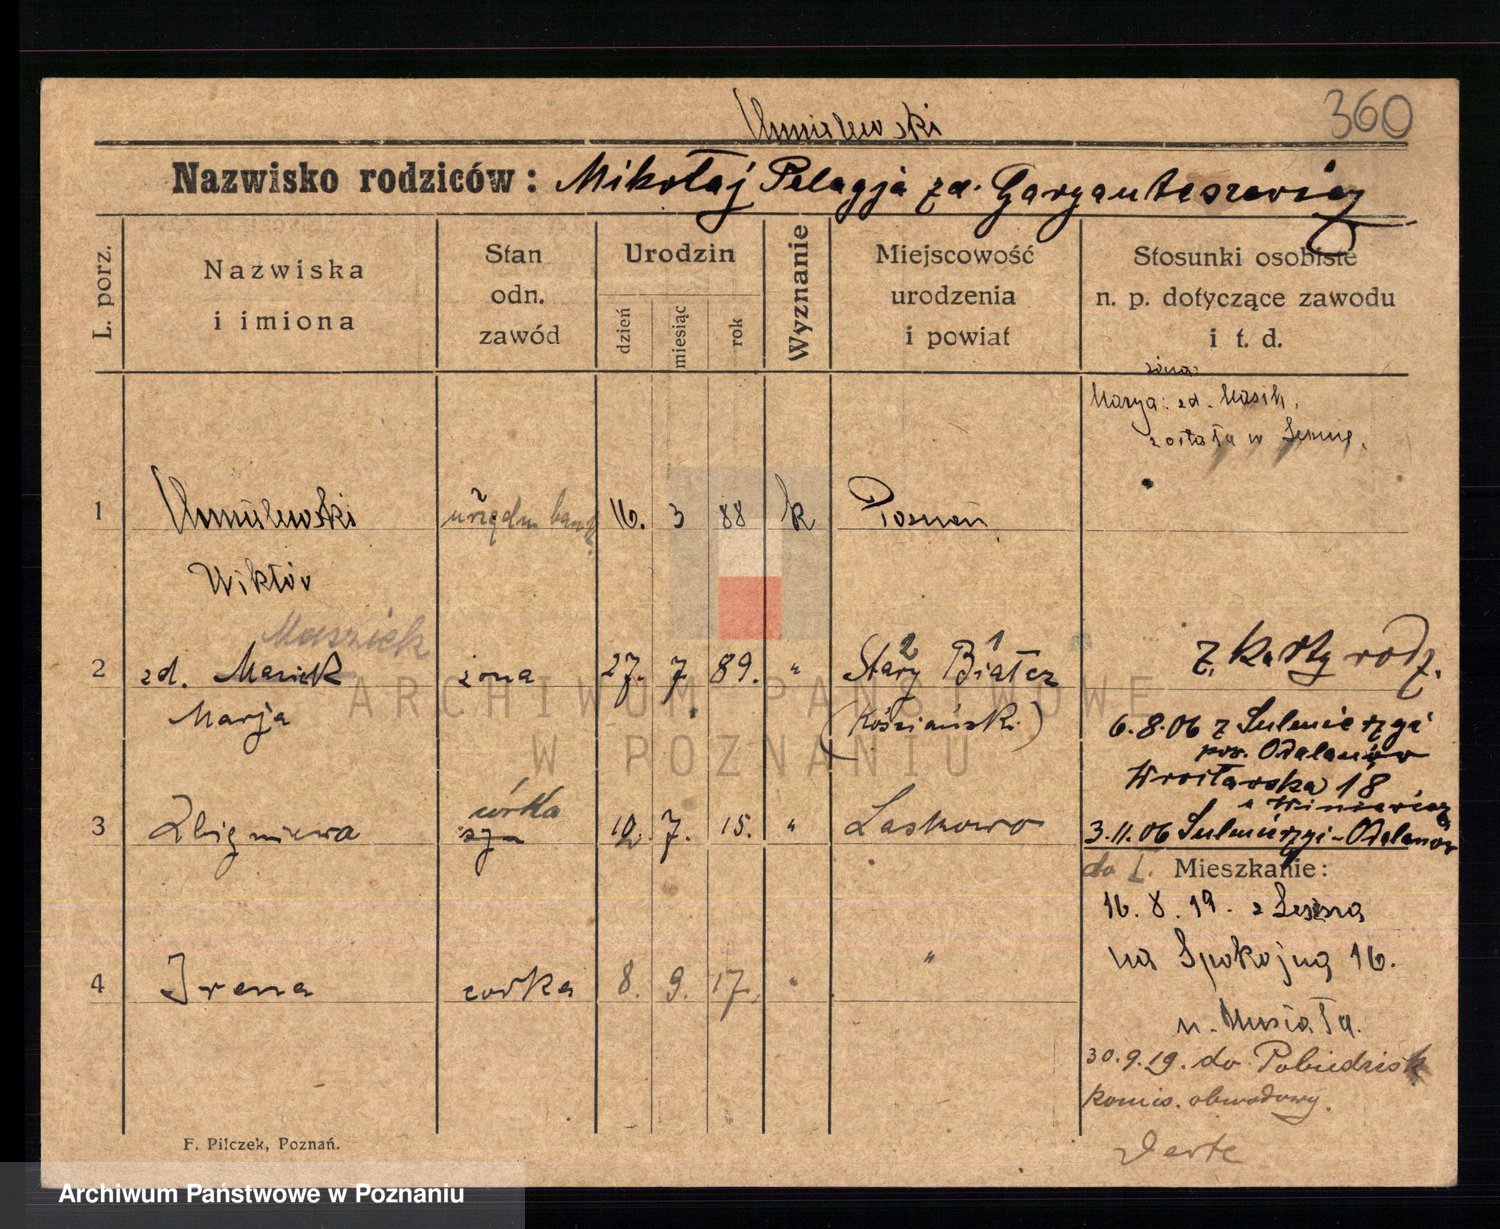 360
Nazwisko rodziców: Mikołaj Pelagja zd.
L. porz.
Nazwiska
i imiona
Stan
odn.
zawód
Urodzin
dzień
miesiąc
rok
Wyznanie
Miejscowość
urodzenia
i powiat
Stosunki osobiste
n. p. dotyczące zawodu
i t. d.
żona:
Marya: zd. Masik,
została w
1 urzędn. bank. 16. 3 88 k Poznań
Wiktór
Masziek
2 zd. Masiek żona 27. 7. 89. " Stary 2 Białcz 1
Marja (Kościański)
z karty rodz.
6.8.06 z Sulmierzyc
pow. Odolanów
Wrocławska 18
córka
3 Zbigniewa syn 12. 7. 15. " Laskowo
3.11.06 Sulmierzyc - Odolanów
do L. Mieszkanie:
16. 8. 19. z Leszna
na Spokojną 16.
4 Irena córka 8. 9. 17. " "
u. Musiała.
30.9.19. do Pobiedzisk
komis. obwodowy.
F. Pilczek, Poznań.
ARCHIWUM PAŃSTWOWE
W POZNANIU
Archiwum Państwowe w Poznaniu